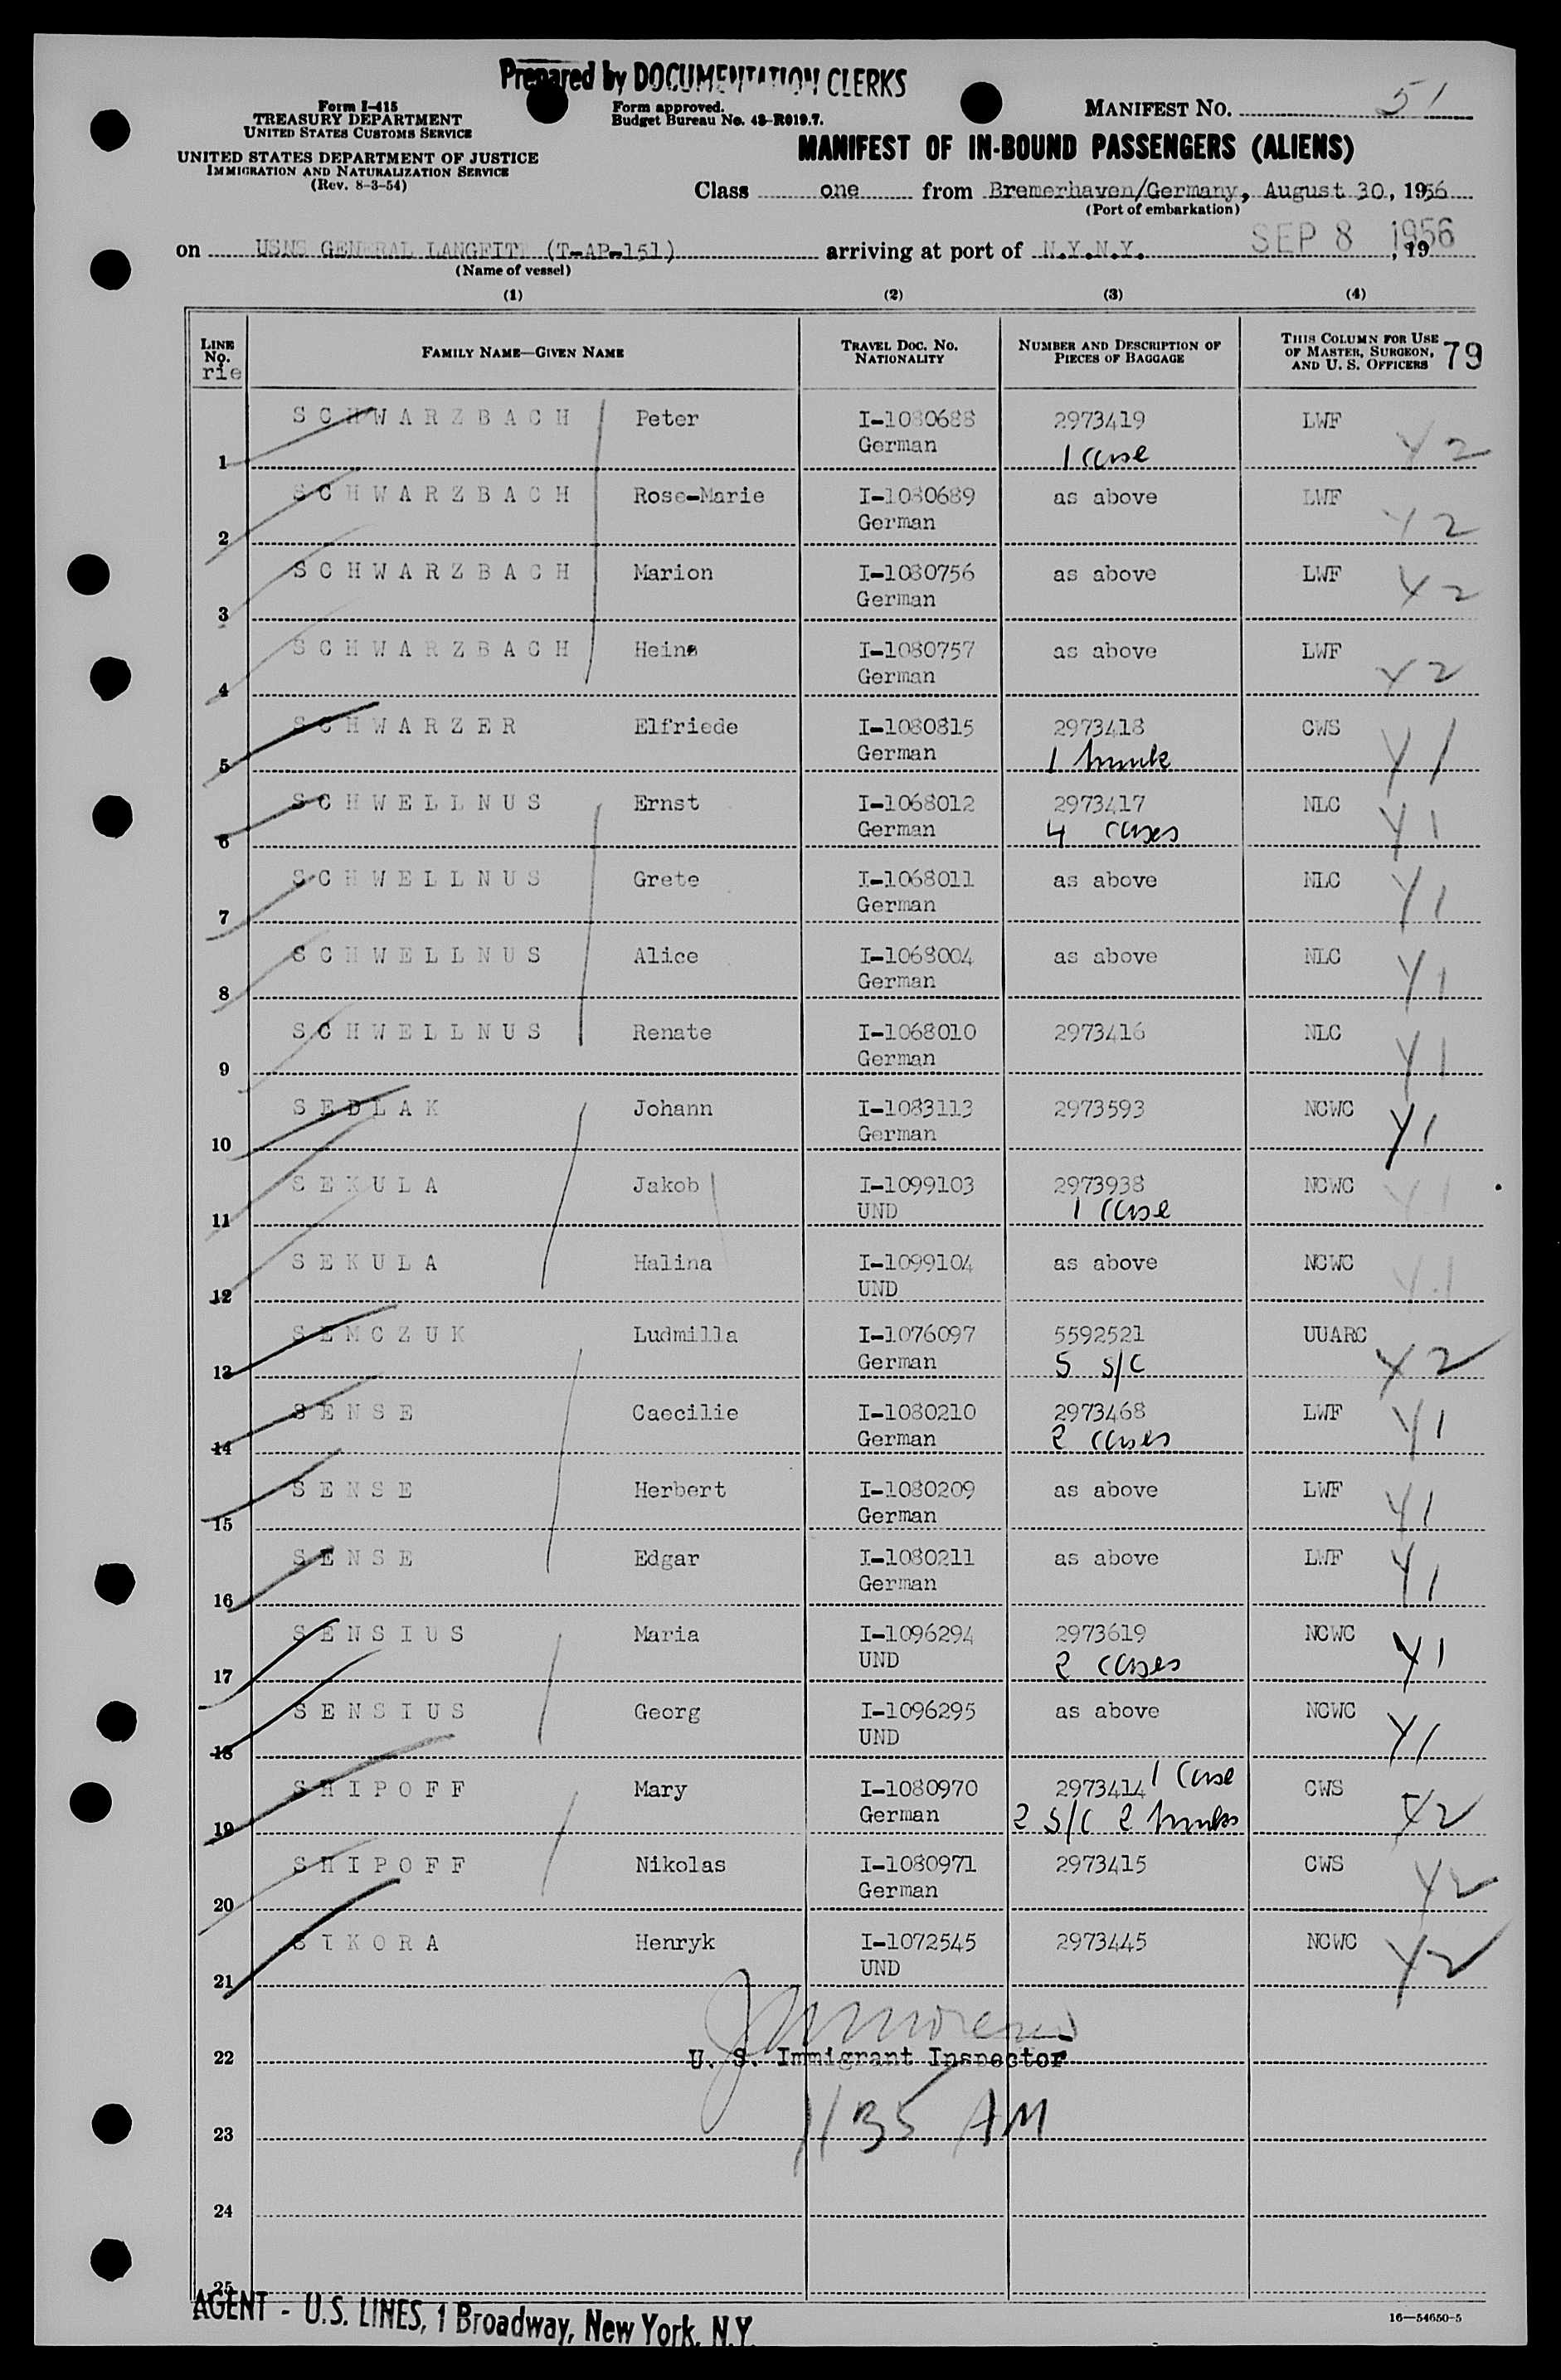 Prepared by DOCUMENTATION CLERKS
Form I-415
TREASURY DEPARTMENT
UNITED STATES CUSTOMS SERVICE
UNITED STATES DEPARTMENT OF JUSTICE
IMMIGRATION AND NATURALIZATION SERVICE
(Rev. 8-3-54)
Form approved.
Budget Bureau No. 43-R019.7.
MANIFEST NO. 51
MANIFEST OF IN-BOUND PASSENGERS (ALIENS)
Class one from Bremerhaven/Germany, August 30, 1956
(Port of embarkation)
on USNS GENERAL LANGFITT (T-AP-151) arriving at port of N.Y.N.Y. SEP 8 1956, 19
(Name of vessel)
(1) (2) (3) (4)
LINE NO. FAMILY NAME—GIVEN NAME TRAVEL DOC. NO. NATIONALITY NUMBER AND DESCRIPTION OF PIECES OF BAGGAGE THIS COLUMN FOR USE OF MASTER, SURGEON, AND U. S. OFFICERS 79
rie
SCHWARZBACH Peter I-1080688 2973419 LWF
1 German 1 case Y2
SCHWARZBACH Rose-Marie I-1080689 as above LWF
2 German Y2
SCHWARZBACH Marion I-1080756 as above LWF
3 German Y2
SCHWARZBACH Heinz I-1080757 as above LWF
4 German Y2
SCHWARZER Elfriede I-1080815 2973418 CWS
5 German 1 trunk Y1
SCHWELLNUS Ernst I-1068012 2973417 NLC
6 German 4 cases Y1
SCHWELLNUS Grete I-1068011 as above NLC
7 German Y1
SCHWELLNUS Alice I-1068004 as above NLC
8 German Y1
SCHWELLNUS Renate I-1068010 2973416 NLC
9 German Y1
SEDLAK Johann I-1083113 2973593 NCWC
10 German Y1
SEKULA Jakob I-1099103 2973938 NCWC
11 UND 1 case Y1
SEKULA Halina I-1099104 as above NCWC
12 UND Y1
SEMCZUK Ludmilla I-1076097 5592521 UUARC
13 German 5 s/c Y2
SENSE Caecilie I-1080210 2973468 LWF
14 German 2 cases Y1
SENSE Herbert I-1080209 as above LWF
15 German Y1
SENSE Edgar I-1080211 as above LWF
16 German Y1
SENSIUS Maria I-1096294 2973619 NCWC
17 UND 2 cases Y1
SENSIUS Georg I-1096295 as above NCWC
18 UND Y1
SHIPOFF Mary I-1080970 2973414 1 case CWS
19 German 2 s/c 2 trunks Y2
SHIPOFF Nikolas I-1080971 2973415 CWS
20 German Y2
SIKORA Henryk I-1072545 2973445 NCWC
21 UND Y2
22 U. S. Immigrant Inspector
23 1135 AM
24
25
AGENT - U.S. LINES, 1 Broadway, New York, N.Y.
16—54650-5